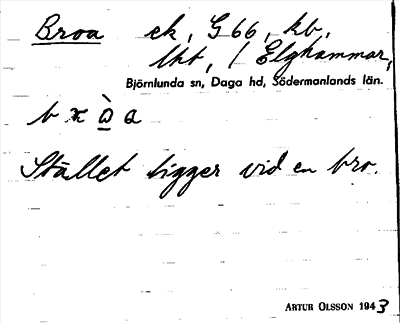 Broa ek, G 66, kb,
lht, / Elghammar,
Björnlunda sn, Daga hd, Södermanlands län.
Stället ligger vid en bro.
ARTUR OLSSON 1943